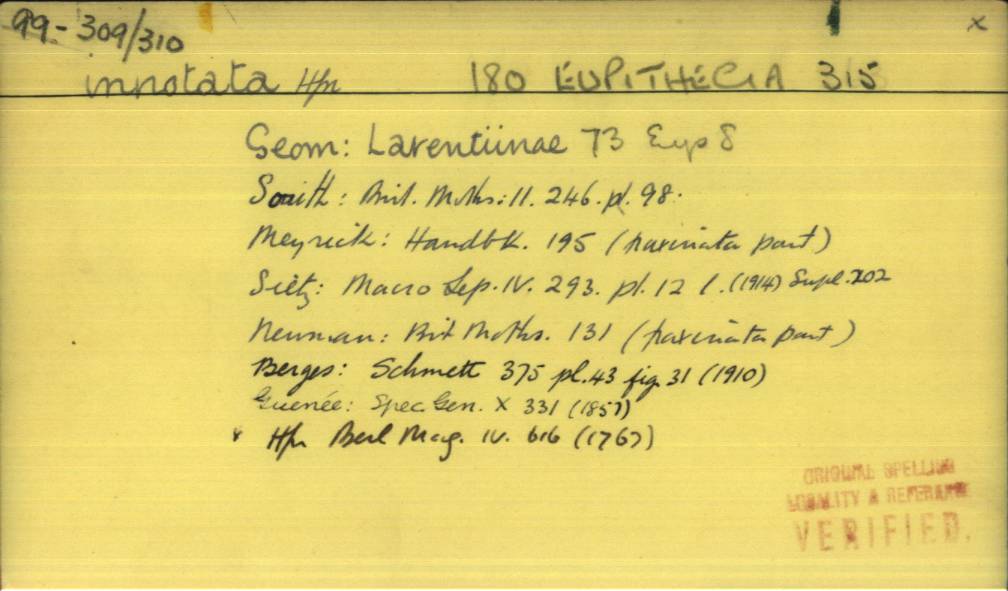 99-309/310 x
innotata Hfn 180 EUPITHECIA 315
Geom: Larentiinae 73 Eup 8
South: Brit. Moths: II. 246. pl. 98.
Meyrick: Handbk. 195 (fraxinata part)
Seitz: Macro Lep. IV. 293. pl. 12 l. (1914) Supl. 202
Newman: Brit Moths. 131 (fraxinata part)
Berges: Schmett 375 pl. 43 fig. 31 (1910)
Guenée: Spec Gen. X 331 (1857)
Hfn Berl Mag. IV. 616 (1767)
ORIGINAL SPELLING
LOCALITY & REFERENCE
VERIFIED.